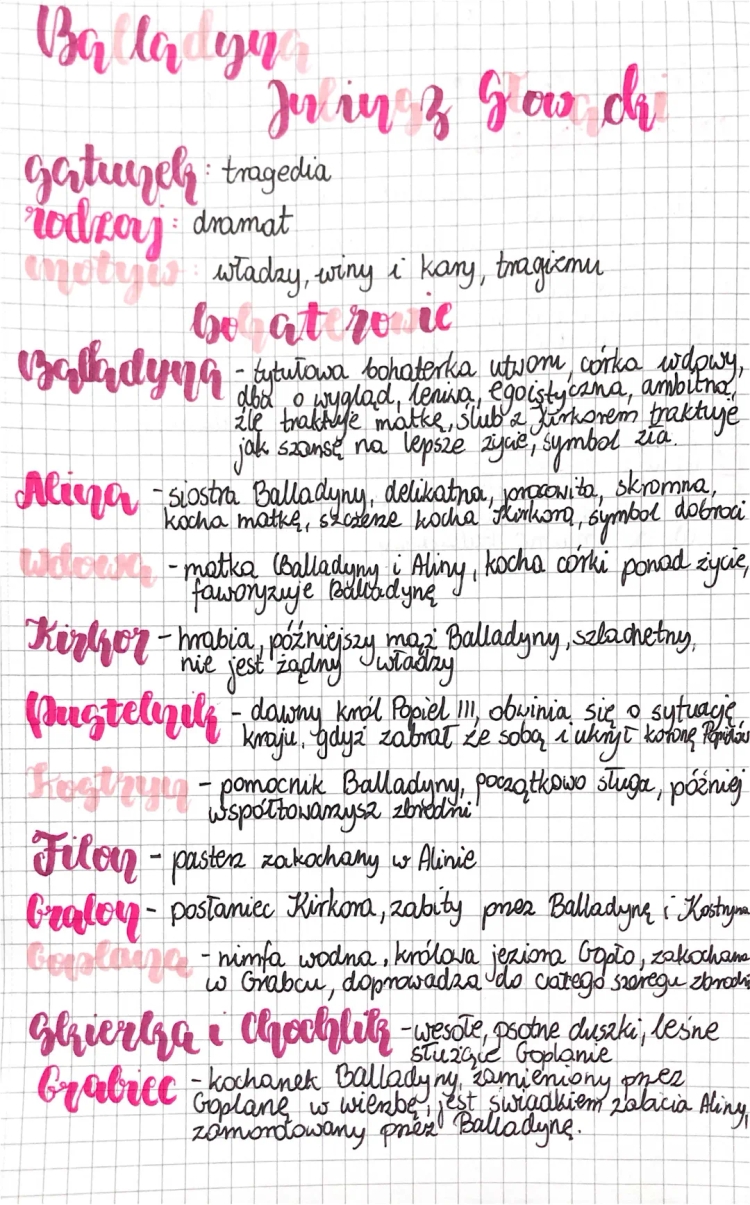 Balladyna
Juliusz Słowacki
gatunek: tragedia
rodzaj: dramat
motyw: władzy, winy i kary, tragizmu
bohaterowie
Balladyna - tytułowa bohaterka utworu, córka wdowy,
dba o wygląd, leniwa, egoistyczna, ambitna,
źle traktuje matkę, ślub z Kirkorem traktuje
jak szansę na lepsze życie, symbol zła.
Alina - siostra Balladyny, delikatna, pracowita, skromna,
kocha matkę, szczerze kocha Kirkora, symbol dobroci
Wdowa - matka Balladyny i Aliny, kocha córki ponad życie,
faworyzuje Balladynę
Kirkor - hrabia, późniejszy mąż Balladyny, szlachetny,
nie jest żądny władzy
Pustelnik - dawny król Popiel III, obwinia się o sytuację
kraju, gdyż zabrał ze sobą i ukrył koronę Popielów
Kostryn - pomocnik Balladyny, początkowo sługa, później
współtowarzysz zbrodni
Filon - pasterz zakochany w Alinie
Gralon - posłaniec Kirkora, zabity przez Balladynę i Kostryna
Goplana - nimfa wodna, królowa jeziora Gopło, zakochana
w Grabcu, doprowadza do całego szeregu zbrodni
Skierka i Chochlik - wesołe, psotne duszki, leśne
służące Goplanie
Grabiec - kochanek Balladyny, zamieniony przez
Goplanę w wierzbę, jest świadkiem zabicia Aliny,
zamordowany przez Balladynę.